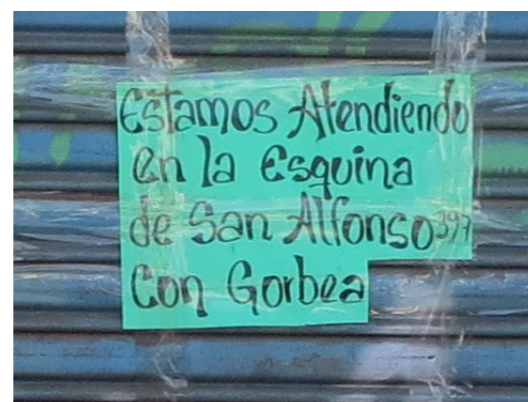 Estamos Atendiendo
en la Esquina
de San Alfonso 397
Con Gorbea